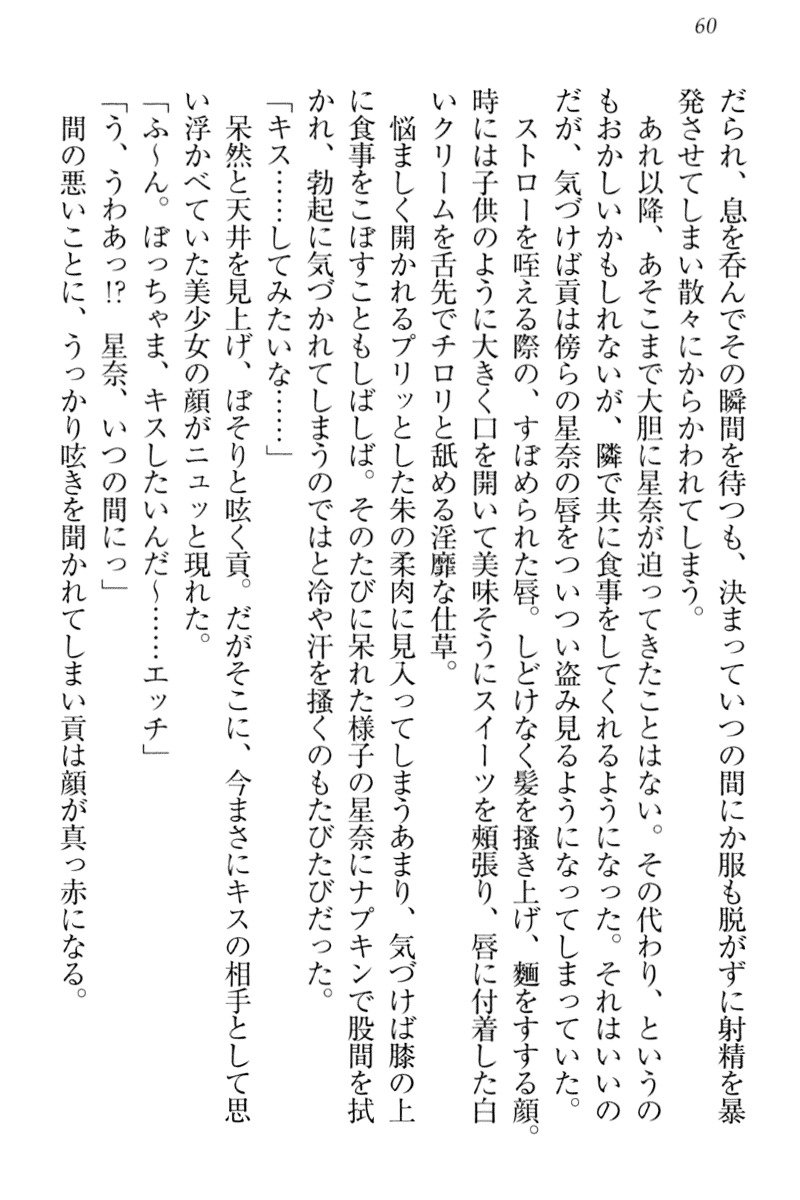 60
だられ、息を呑んでその瞬間を待つも、決まっていつの間にか服も脱がずに射精を暴
発させてしまい散々にからかわれてしまう。
あれ以降、あそこまで大胆に星奈が迫ってきたことはない。その代わり、というの
もおかしいかもしれないが、隣で共に食事をしてくれるようになった。それはいいの
だが、気づけば貢は傍らの星奈の唇をついつい盗み見るようになってしまっていた。
ストローを咥える際の、すぼめられた唇。しどけなく髪を搔き上げ、麵をすする顔。
時には子供のように大きく口を開いて美味そうにスイーツを頰張り、唇に付着した白
いクリームを舌先でチロリと舐める淫靡な仕草。
悩ましく開かれるプリッとした朱の柔肉に見入ってしまうあまり、気づけば膝の上
に食事をこぼすこともしばしば。そのたびに呆れた様子の星奈にナプキンで股間を拭
かれ、勃起に気づかれてしまうのではと冷や汗を搔くのもたびたびだった。
「キス……してみたいな……」
呆然と天井を見上げ、ぼそりと呟く貢。だがそこに、今まさにキスの相手として思
い浮かべていた美少女の顔がニュッと現れた。
「ふ～ん。ぼっちゃま、キスしたいんだ～……エッチ」
「う、うわあっ!?　星奈、いつの間にっ」
間の悪いことに、うっかり呟きを聞かれてしまい貢は顔が真っ赤になる。